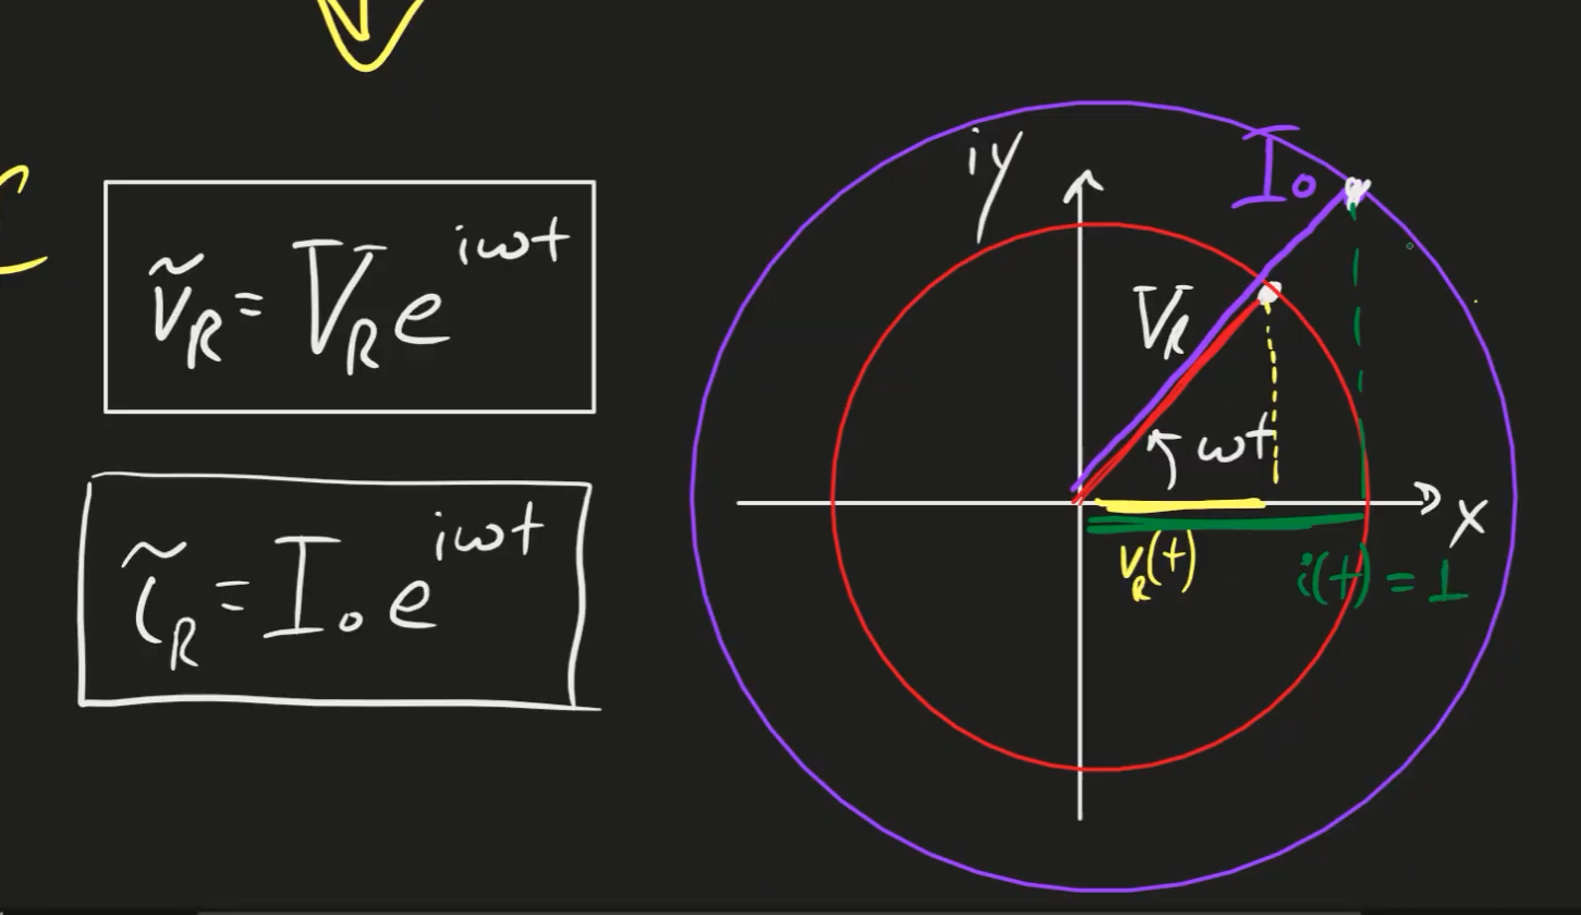 ṽ_R = V_R e^{iωt}
ĩ_R = I₀ e^{iωt}
iy
I₀
V_R
ωt
x
v_R(t)
i(t) = I